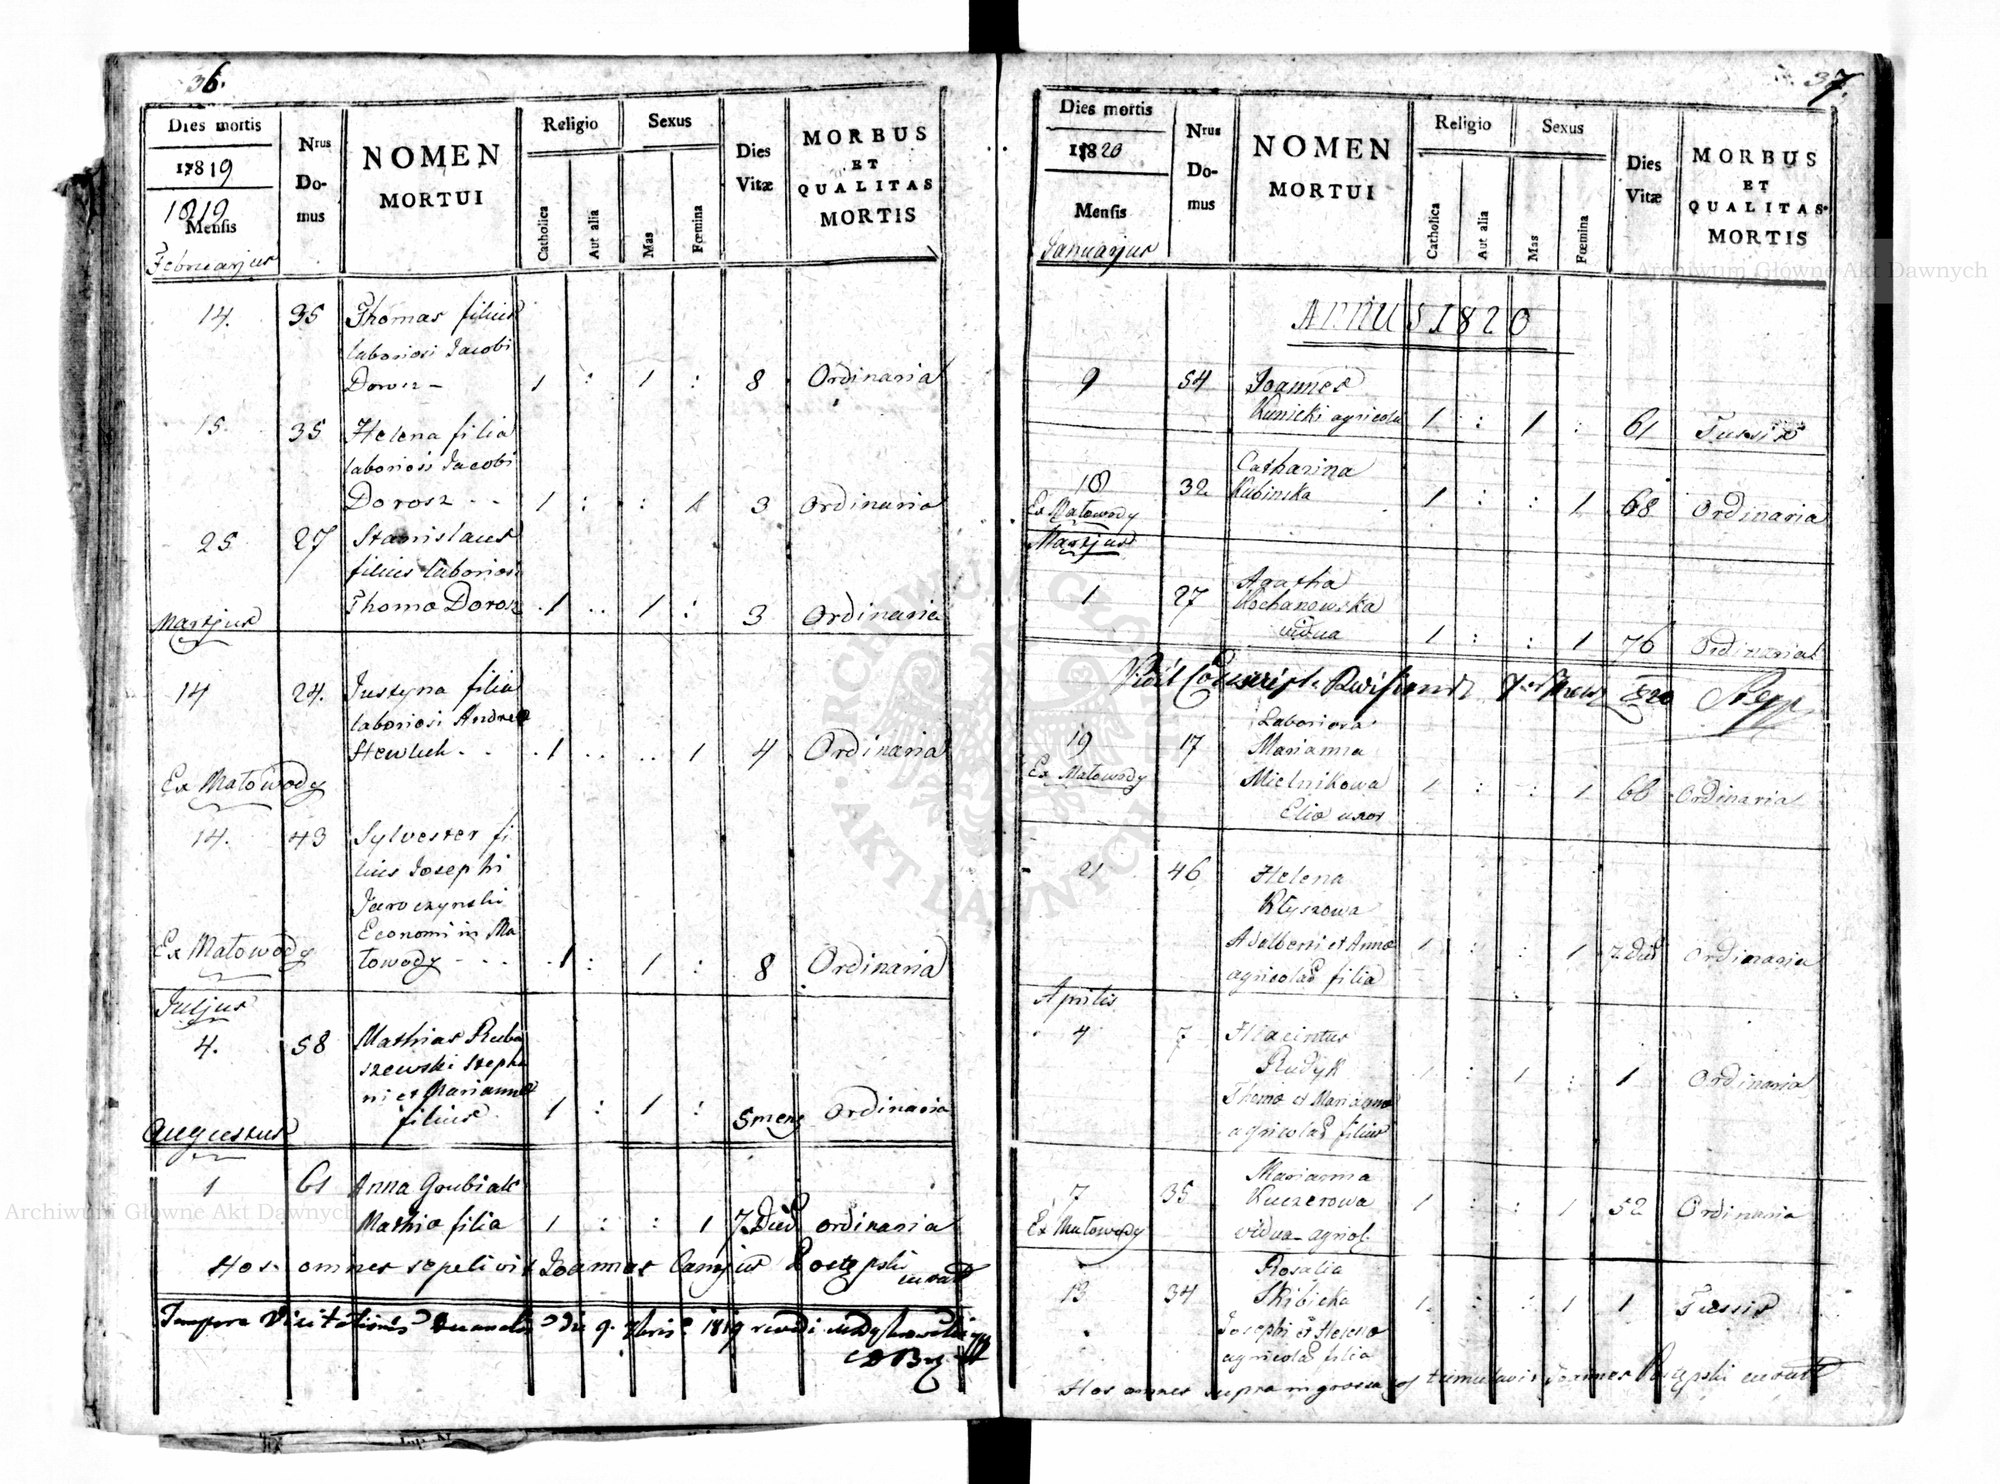 36.
Dies mortis
1819
1819
Mensis
Februarjus
Nrus
Do-
mus
NOMEN
MORTUI
Religio
Catholica
Aut alia
Sexus
Mas
Fœmina
Dies
Vitæ
MORBUS
ET
QUALITAS
MORTIS
14. 35 Thomas filius
laboriosi Jacobi
Dorosz - 1 : 1 : 8 Ordinaria
15. 35 Helena filia
laboriosi Jacobi
Dorosz - - 1 : : 1 3 Ordinaria
25 27 Stanislaus
filius laboriosi
Thoma Dorosz 1 .. 1 : 3 Ordinaria
Martjus
14 24. Justyna filia
laboriosi Andreæ
Hewluk - - 1 .. .. 1 4 Ordinaria
Ex Matowody
14. 43 Sylvester fi
lius Josephi
Jaroczynski
Economi in Ma
towody - - - 1 : 1 : 8 Ordinaria
Ex Matowody
Juljus
4. 58 Mathias Ruba
szewski Stepha
ni et Mariannæ
filius 1 : 1 : 5 mens Ordinaria
Augustus
1 61 Anna Grubiak
Mathia filia 1 : : 1 7 Died ordinaria
Hos omnes sepelivit Joannes Canjus Postępski curatus
Tempore Visitationis 1819
37.
Dies mortis
1820
Mensis
Januarjus
Nrus
Do-
mus
NOMEN
MORTUI
Religio
Catholica
Aut alia
Sexus
Mas
Fœmina
Dies
Vitæ
MORBUS
ET
QUALITAS
MORTIS
ANNUS 1820
9 54 Joannes
Kunicki agricola 1 : 1 : 61 Tussis
18 32 Catharina
Kubinska 1 : : 1 68 Ordinaria
Ex Matowody
Martjus
1 27 Agatha
Kochanowska
vidua 1 : : 1 76 Ordinaria
1820
Laboriosa
19 17 Marianna
Ex Matowody
Mielnikowa 1 : : 1 68 Ordinaria
Eliæ uxor
21 46 Helena
Kłyszowa
Adalberti et Annæ 1 : : 1 7 Died Ordinaria
agricolas filia
Aprilis
4 7 Hiacintus
Rudyk 1 : 1 : 1 Ordinaria
Thomæ et Mariannæ
agricolas filius
Marianna
7 35 Kuczerowa 1 : : 1 52 Ordinaria
Ex Matowody
vidua agricol.
Rosalia
13 34 Skibicka 1 : : 1 1 Tussis
Josephi et Helenæ
agricolas filia
Hos omnes supra tumulavit Joannes Postępski curatus
Archiwum Główne Akt Dawnych
Archiwum Główne Akt Dawnych
ARCHIWUM GŁÓWNE
AKT DAWNYCH